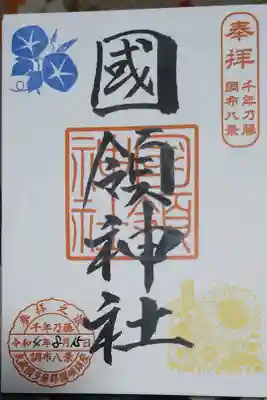 奉拝
千年乃藤
調布八景
國領神社
國領神社
参拝之証
千年乃藤
令和4年8月15日
調布八景